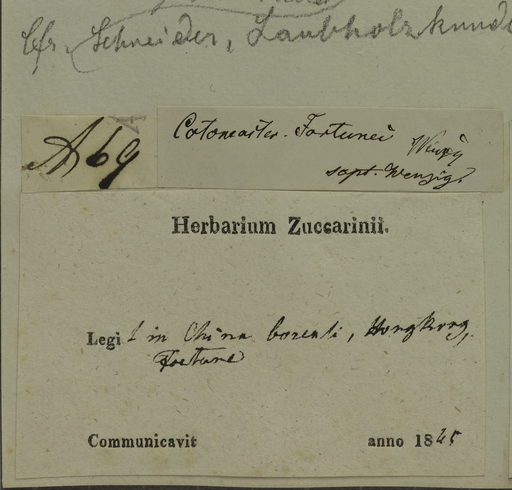 Cfr. Schneider, Laubholzkunde
A 69
Cotoneaster Fortunei Wenzig
sspt. Wenzig.
Herbarium Zuccarinii.
Legit in China boreali, Hongkong,
Fortune
Communicavit anno 1845